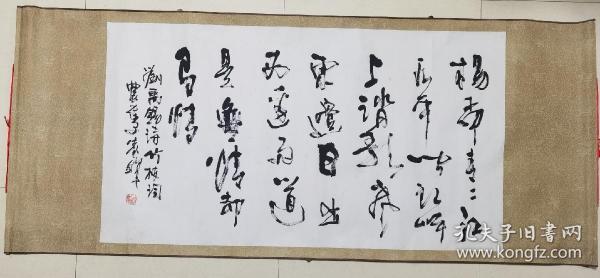 楊柳青二江
水平聞郎岸
上踏歌聲
東邊日出
西邊雨道
是無情却
有情
劉禹錫詩竹枝詞
孔夫子旧书网
kongfz.com